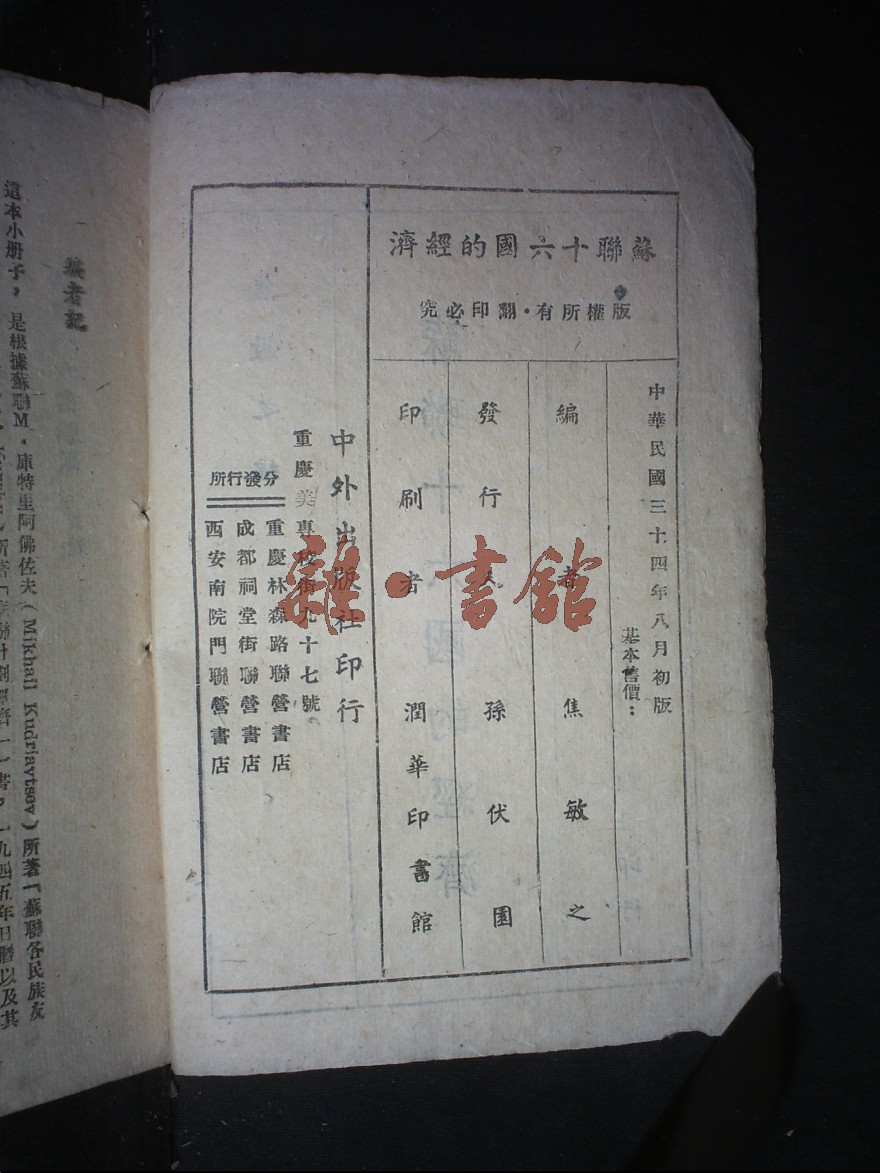 蘇聯十六國的經濟
版權所有・翻印必究
中華民國三十四年八月初版
基本售價：
編者 焦敏之
發行人 孫伏園
印刷者 潤華印書館
中外出版社印行
重慶美專校街九十七號
分發行所
重慶林森路聯營書店
成都祠堂街聯營書店
西安南院門聯營書店
雜・書館
編者記
這本小册子，是根據蘇聯M・庫特里阿佛佐夫（Mikhall Kudriavtsev）所著「蘇聯各民族友
所著「蘇聯計劃經濟」一書，一九四五年日曆以及其